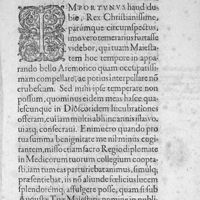 IMPORTVNVS haud du-
bie, Rex Christianissime,
parumque circumspectus,
imo vero temerarius fortasse
videbor, qui tuam Maiesta-
tem hoc tempore in appa-
rando bello Aremorico quam occupatissi-
mam compellare, ac potius interpellare nō
erubescam. Sed mihi ipse temperare non
possum, quominus eidem meas hasce qua-
lescunque in Dioscoridem lucubrationes
offeram, cui iam multis ab hinc annis illas vo-
ui atq; consecraui. Enimuero quando pro
tua summa benignitate me nil minus cogi-
tantem, misso etiam sacro Regio diplomate
in Medicorum tuorum collegium coopta-
sti, iam tum eas parturiebat animus, simulq;
præsentiebat, iis nō aliunde fœlicius lucem
splendoremq; affulgere posse, quam si sub
Augusto Tuæ Maiestatis nomine in publi-